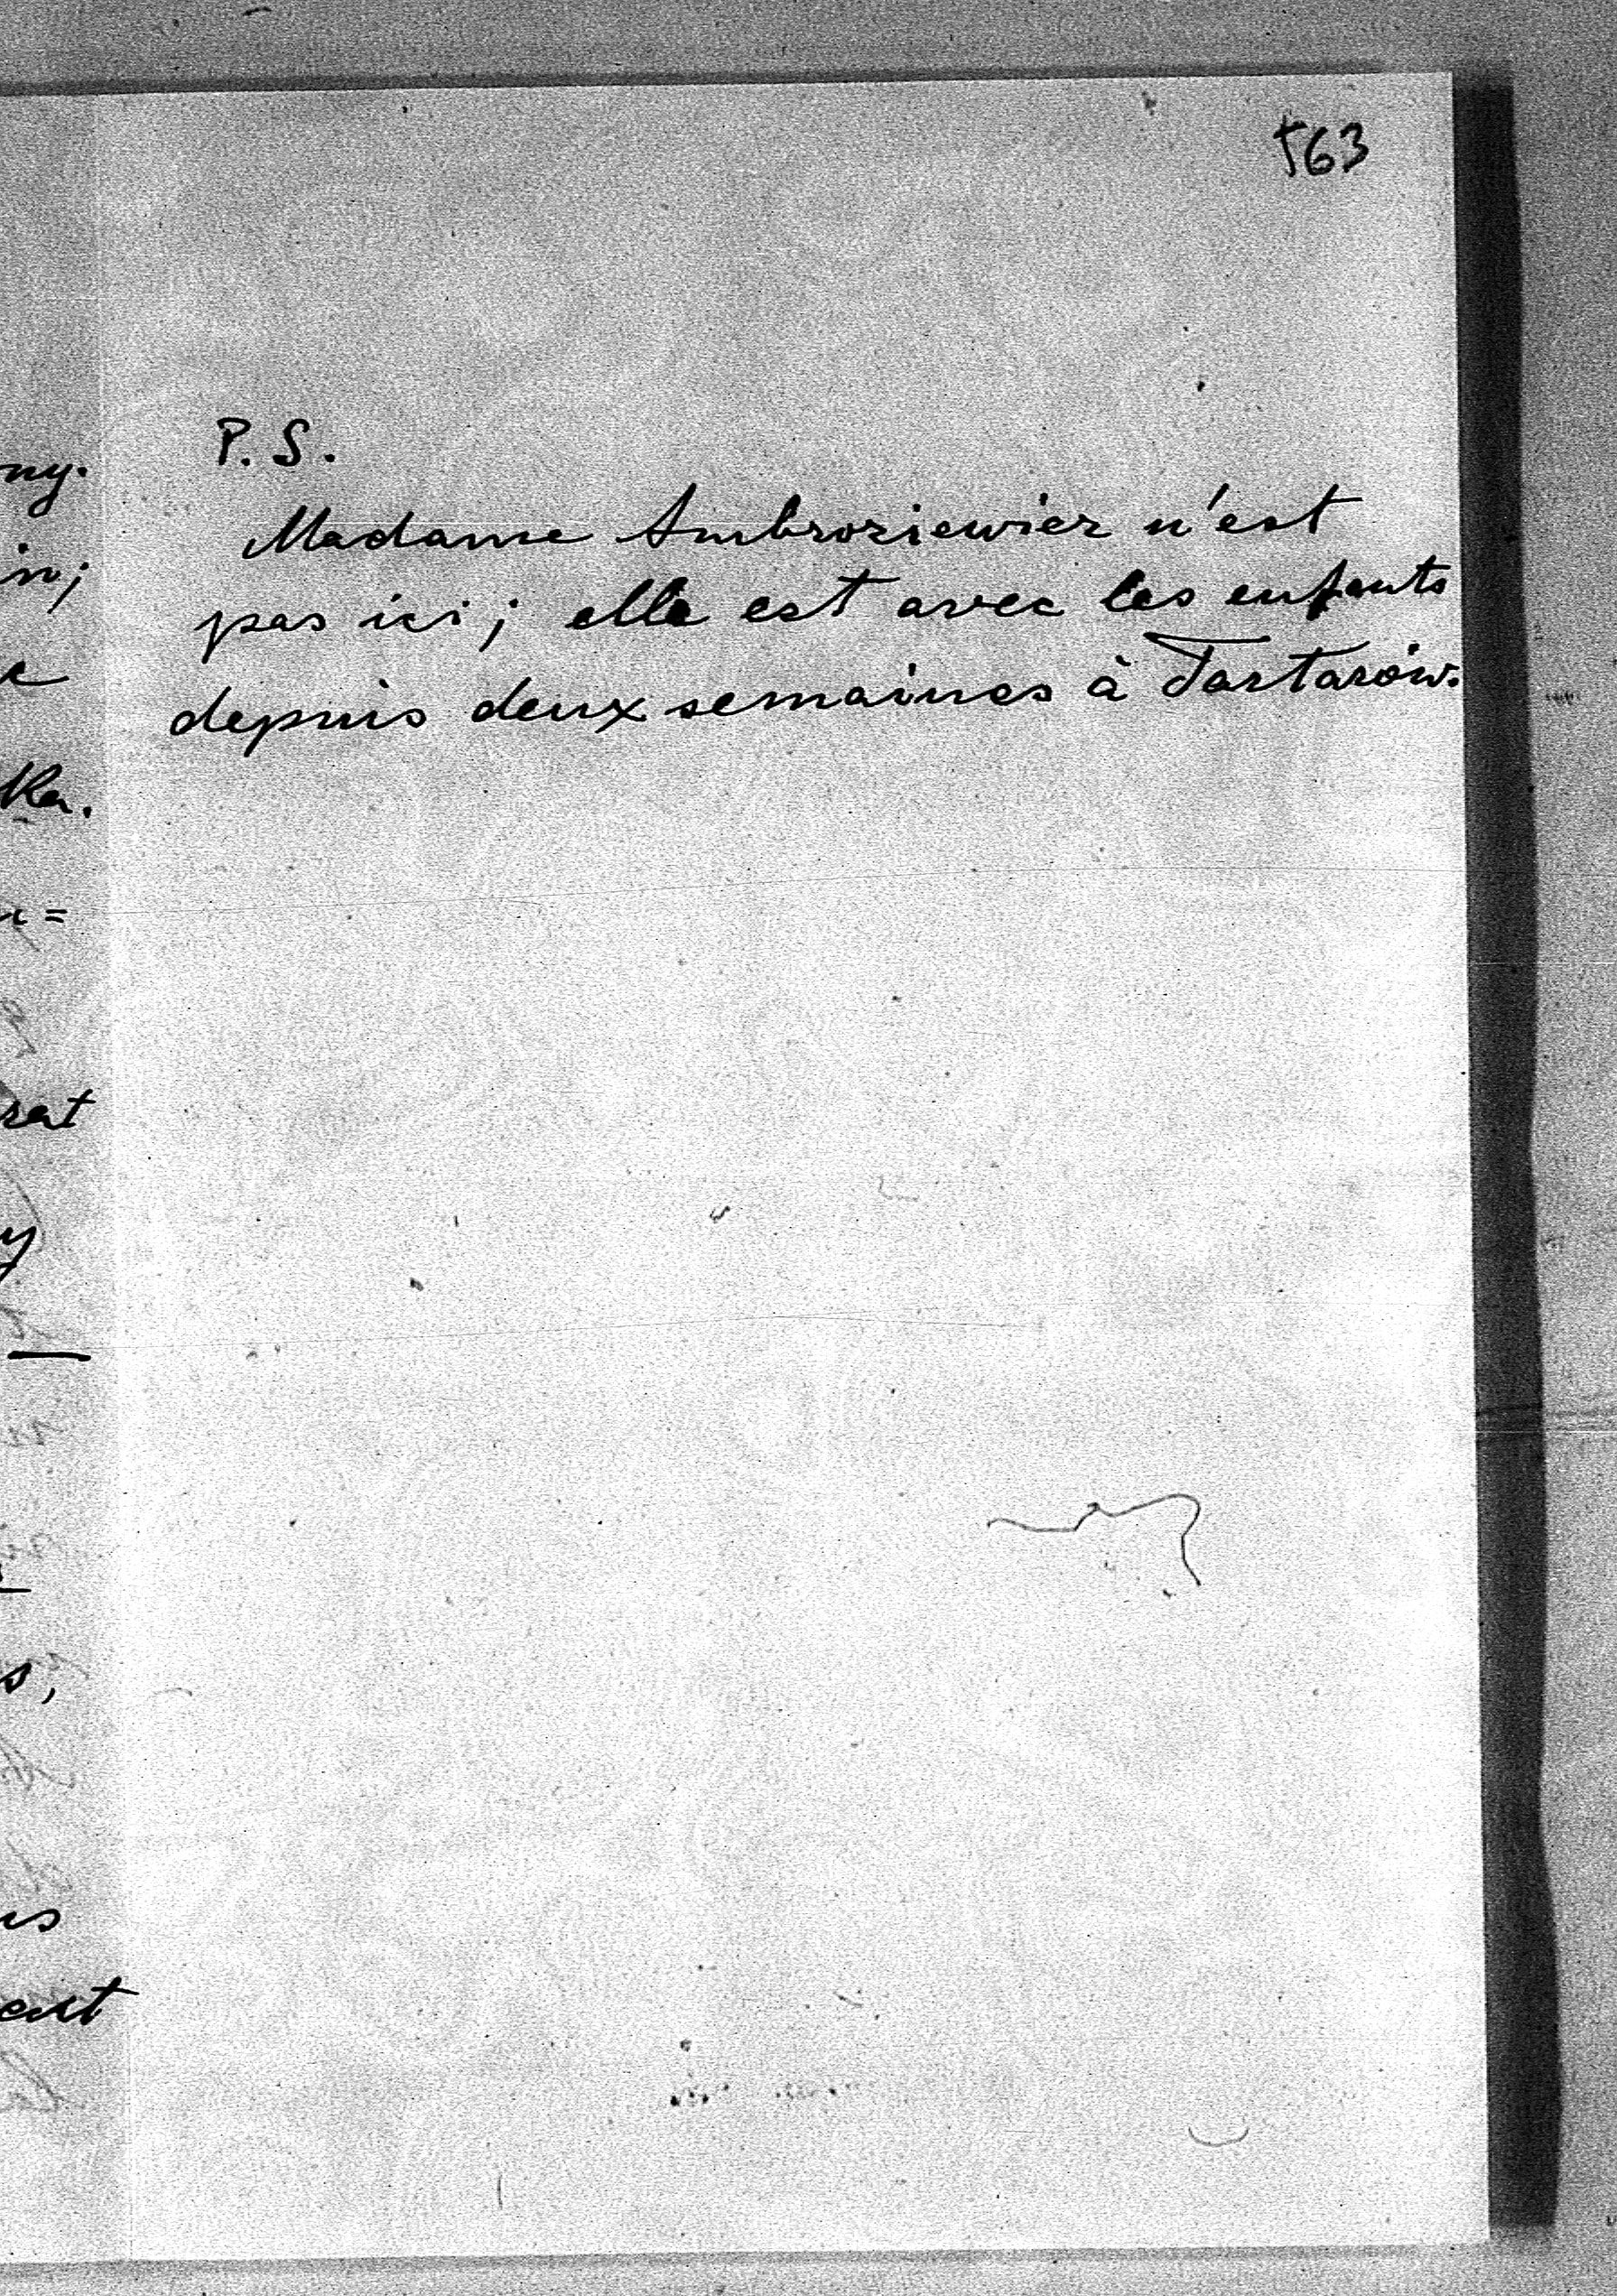 163
P. S.
Madame Ambroziewicz n'est
pas ici; elle est avec les enfants
depuis deux semaines à Tartarów.
ny.
in;
e
ka.
rat
y
s,
us
ent